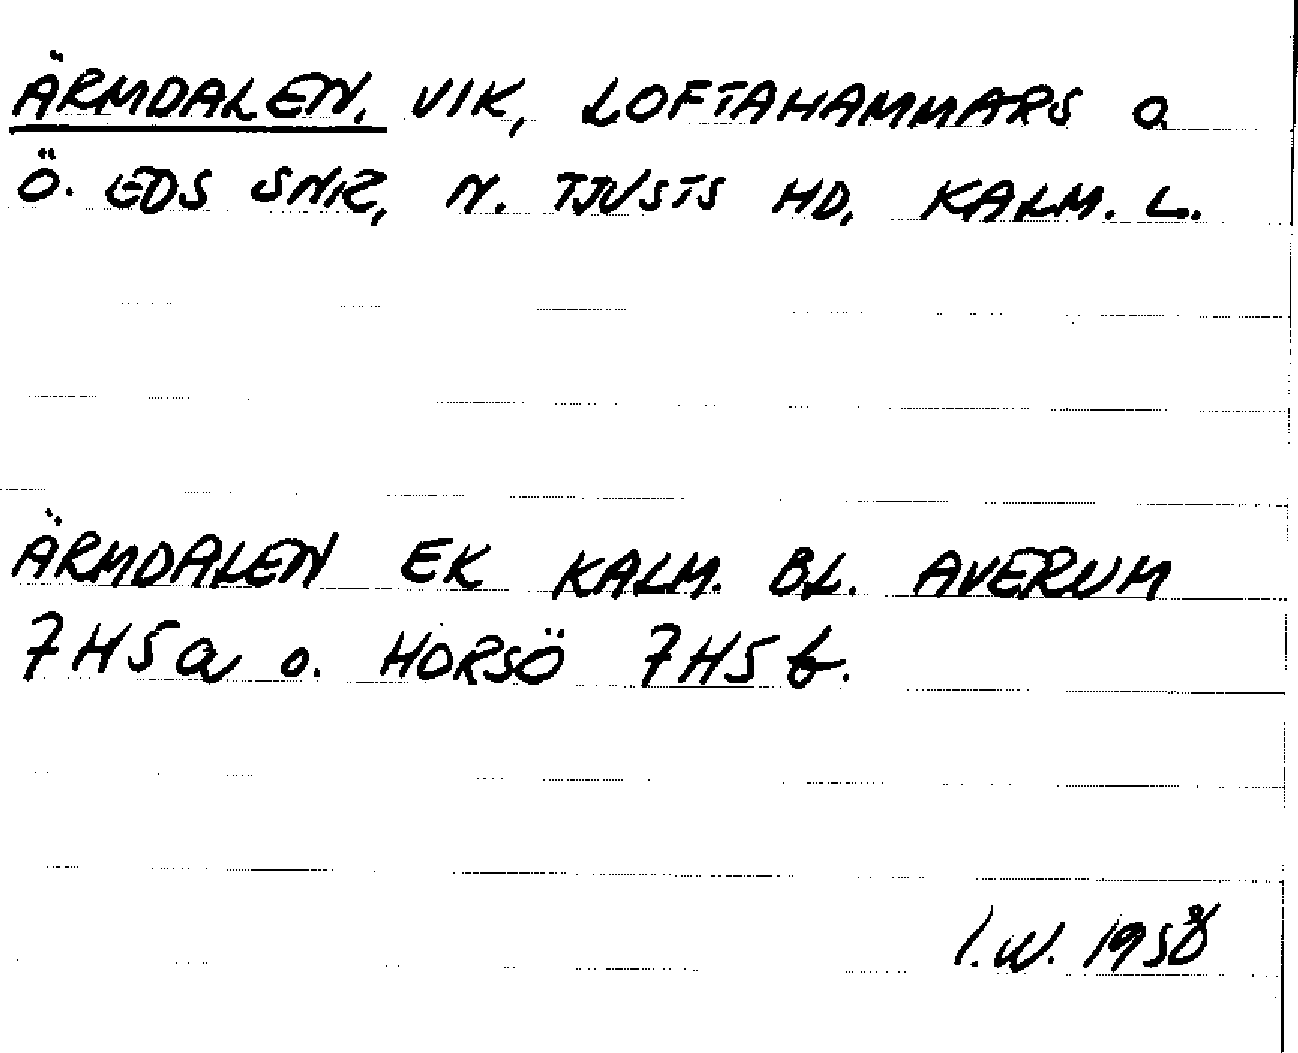 ÄRMDALEN. VIK, LOFTAHAMMARS o.
Ö. EDS SNR, N. TJUSTS HD, KALM. L.
ÄRMDALEN EK KALM. BL. AVERUM
7H5a o. HORSÖ 7H5b.
I.W. 1958